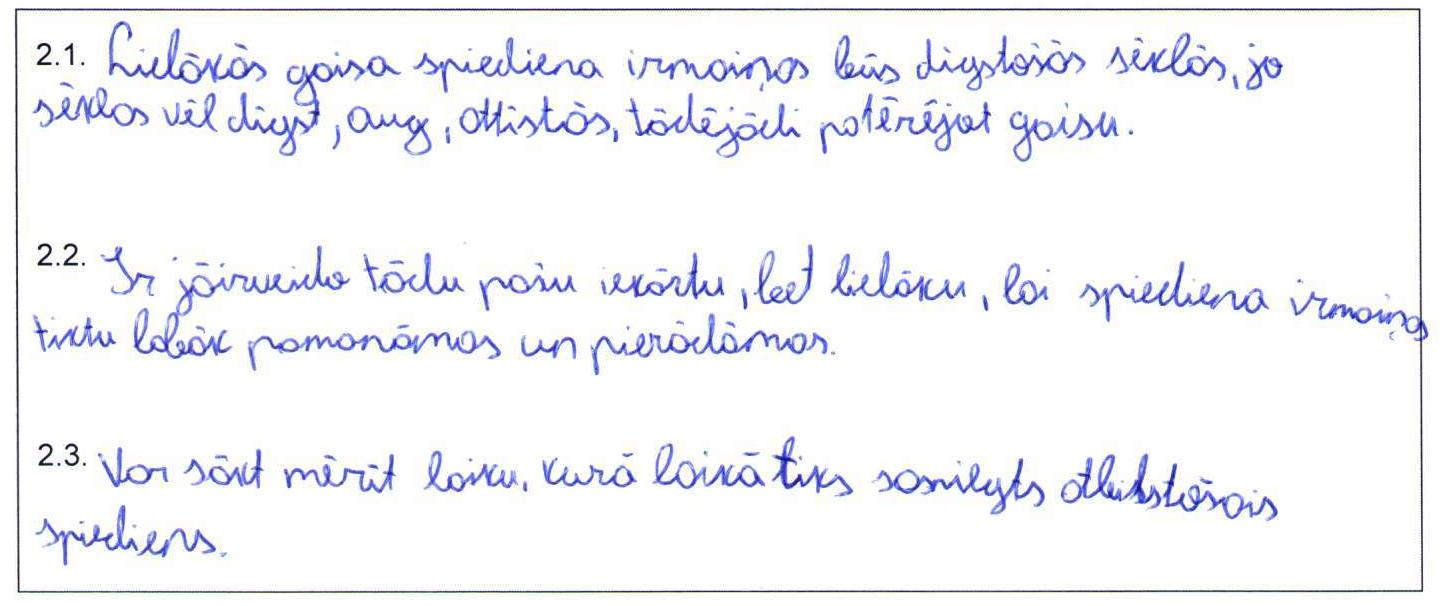 2.1. Lielākās gaisa spiediena izmaiņas būs dīgstošās sēklās, jo
sēklas vēl dīgst, aug, attīstās, tādējādi patērējot gaisu.
2.2. Ir jāizveido tādu pašu iekārtu, bet lielāku, lai spiediena izmaiņas
tiktu labāk pamanāmas un pierādāmas.
2.3. Var sākt mērīt laiku, kurā laikā tiks sasniegts atbilstošais
spiediens.